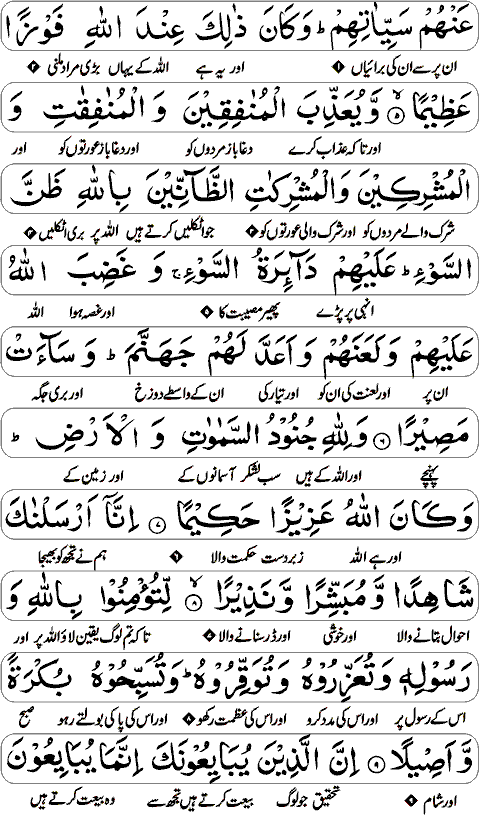 عَنْهُمْ سَيِّاٰتِهِمْ ؕ وَكَانَ ذٰلِكَ عِنْدَ اللّٰهِ فَوْزًا
ان پر سے ان کی برائیاں ۱ اور یہ ہے اللہ کے یہاں بڑی مراد ملنی ۲
عَظِيْمًا ۙ‏ ۵ وَّيُعَذِّبَ الْمُنٰفِقِيْنَ وَ الْمُنٰفِقٰتِ وَ
اور تاکہ عذاب کرے دغا باز مردوں کو اور دغا باز عورتوں کو اور
الْمُشْرِكِيْنَ وَالْمُشْرِكٰتِ الظَّآنِّيْنَ بِاللّٰهِ ظَنَّ
شرک والے مردوں کو اور شرک والی عورتوں کو جو اٹکلیں کرتے ہیں اللہ پر بری اٹکلیں
السَّوْءِ ؕ عَلَيْهِمْ دَآئِرَةُ السَّوْءِ ۚ وَ غَضِبَ اللّٰهُ
انہی پر پڑے پھیر مصیبت کا اور غصہ ہوا اللہ
عَلَيْهِمْ وَ لَعَنَهُمْ وَ اَعَدَّ لَهُمْ جَهَنَّمَ ؕ وَ سَآءَتْ
ان پر اور لعنت کی ان کو اور تیار کی ان کے واسطے دوزخ اور بری جگہ
مَصِيْرًا ۶ وَلِلّٰهِ جُنُوْدُ السَّمٰوٰتِ وَ الْاَرْضِ ؕ
پہنچے اور اللہ کے ہیں سب لشکر آسمانوں کے اور زمین کے
وَكَانَ اللّٰهُ عَزِيْزًا حَكِيْمًا ۷ اِنَّاۤ اَرْسَلْنٰكَ
اور ہے اللہ زبردست حکمت والا ہم نے تجھ کو بھیجا
شَاهِدًا وَّ مُبَشِّرًا وَّ نَذِيْرًا ۙ ۸ لِّتُؤْمِنُوْا بِاللّٰهِ وَ
احوال بتانے والا اور خوشی اور ڈر سنانے والا تاکہ تم لوگ یقین لاؤ اللہ پر اور
رَسُوْلِهٖ وَ تُعَزِّرُوْهُ وَ تُوَقِّرُوْهُ ؕ وَ تُسَبِّحُوْهُ بُكْرَةً
اس کے رسول پر اور اس کی مدد کرو اور اس کی عظمت رکھو اور اس کی پاکی بولتے رہو صبح
وَّ اَصِيْلًا ۹ اِنَّ الَّذِيْنَ يُبَايِعُوْنَكَ اِنَّمَا يُبَايِعُوْنَ
اور شام تحقیق جو لوگ بیعت کرتے ہیں تجھ سے وہ بیعت کرتے ہیں